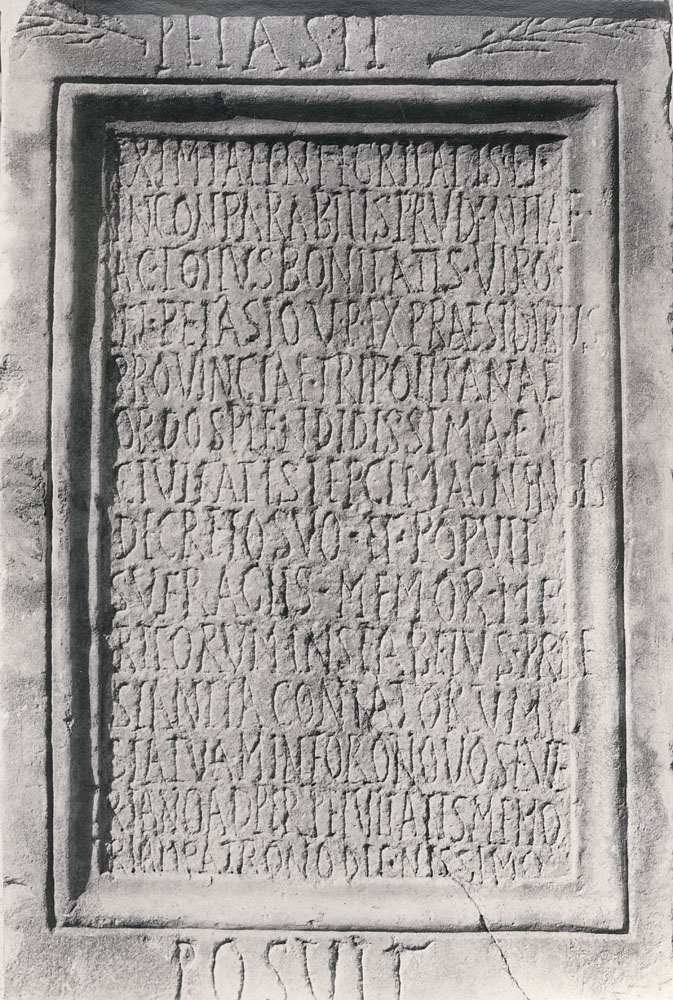 PETASII
EXIMIAE INTEGRITATIS ET
INCONPARABILIS PRVDENTIAE
AC TOTIVS BONITATIS · VIRO ·
PETASIO V P EX PRAESIDIBVS
PROVINCIAE TRIPOLITANAE
ORDO SPLENDIDISSIMAE
CIVITATIS LEPCIMAGNENSIS
DECRETO SVO · ET · POPVLI
SVFRAGIIS · MEMOR · ME
RITORVM IN SE AB EIVS PRAE
STANTIA CONLATORVM
STATVAM IN FORO NOVO SEVE
RIANO AD PERPETVITATIS MEMO
RIAM PATRONO DIGNISSIMO
POSVIT